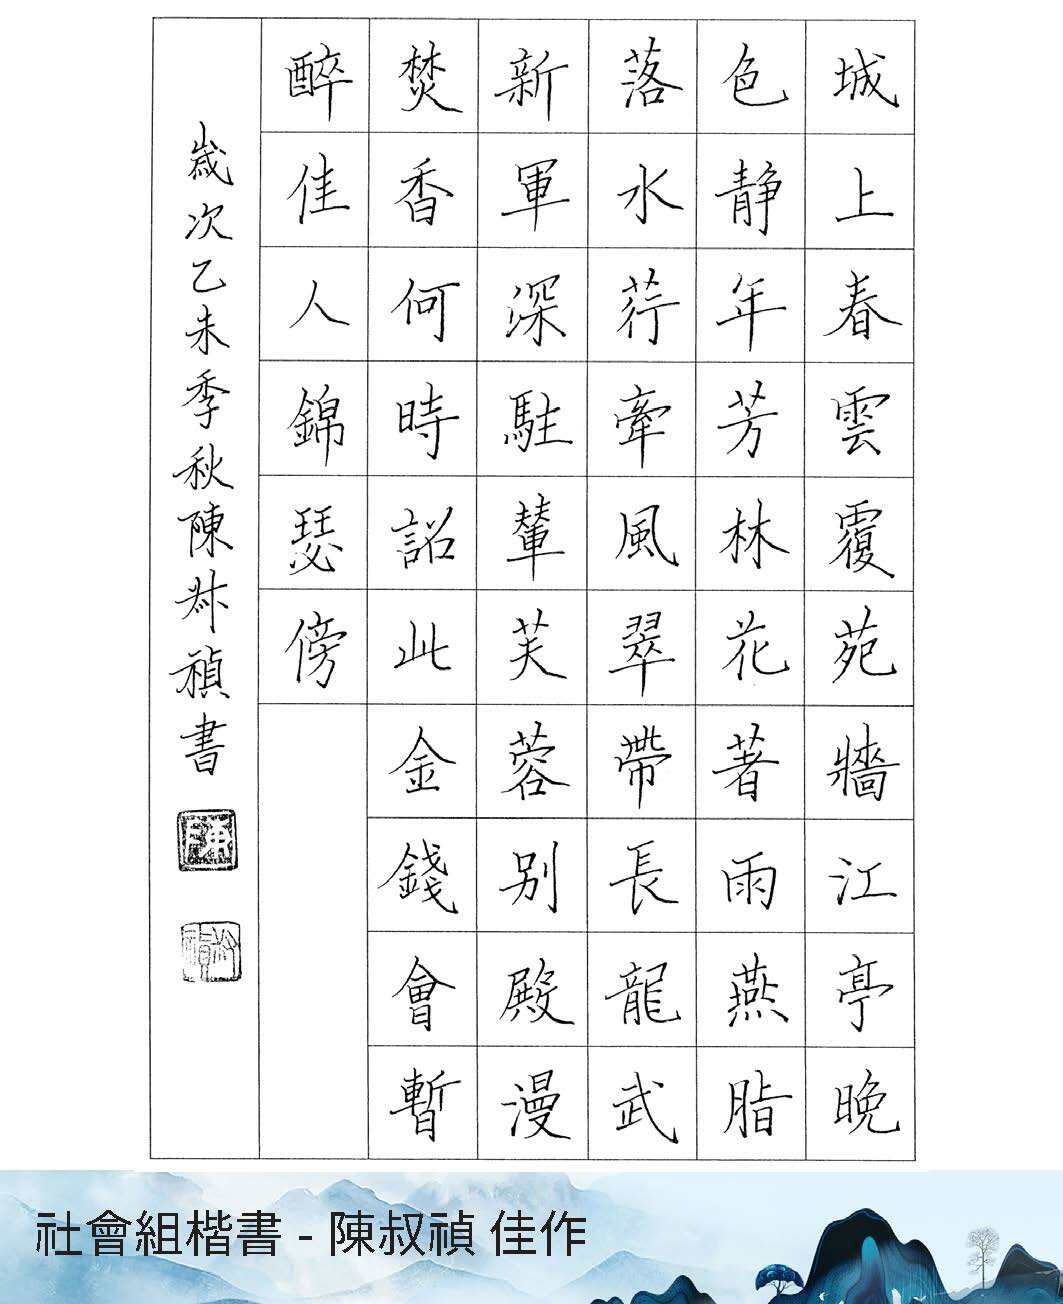 城上春雲覆苑牆江亭晚
色靜年芳林花著雨燕脂
落水荇牽風翠帶長龍武
新軍深駐輦芙蓉別殿漫
焚香何時詔此金錢會暫
醉佳人錦瑟傍
歲次乙未季秋陳叔禎書
陳
叔禎
社會組楷書 - 陳叔禎 佳作